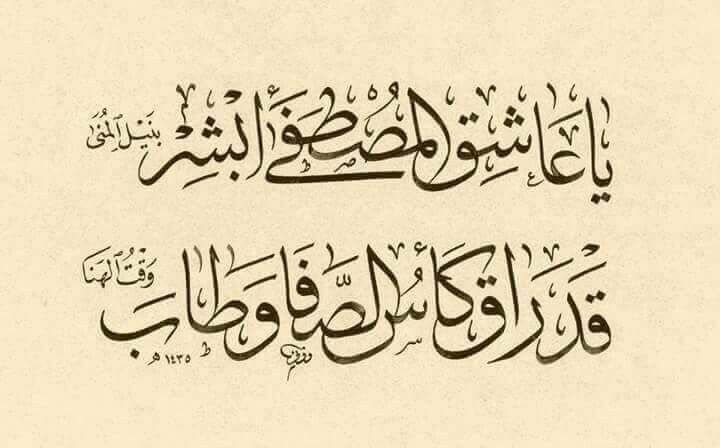 يَا عَاشِقَ الْمُصْطَفَىٰ أَبْشِرْ بِنَيْلِ الْمُنَىٰ
قَدْ رَاقَ كَأْسُ الصَّفَا وَطَابَ وَقْتُ الْهَنَا
١٤٣٥ ھ